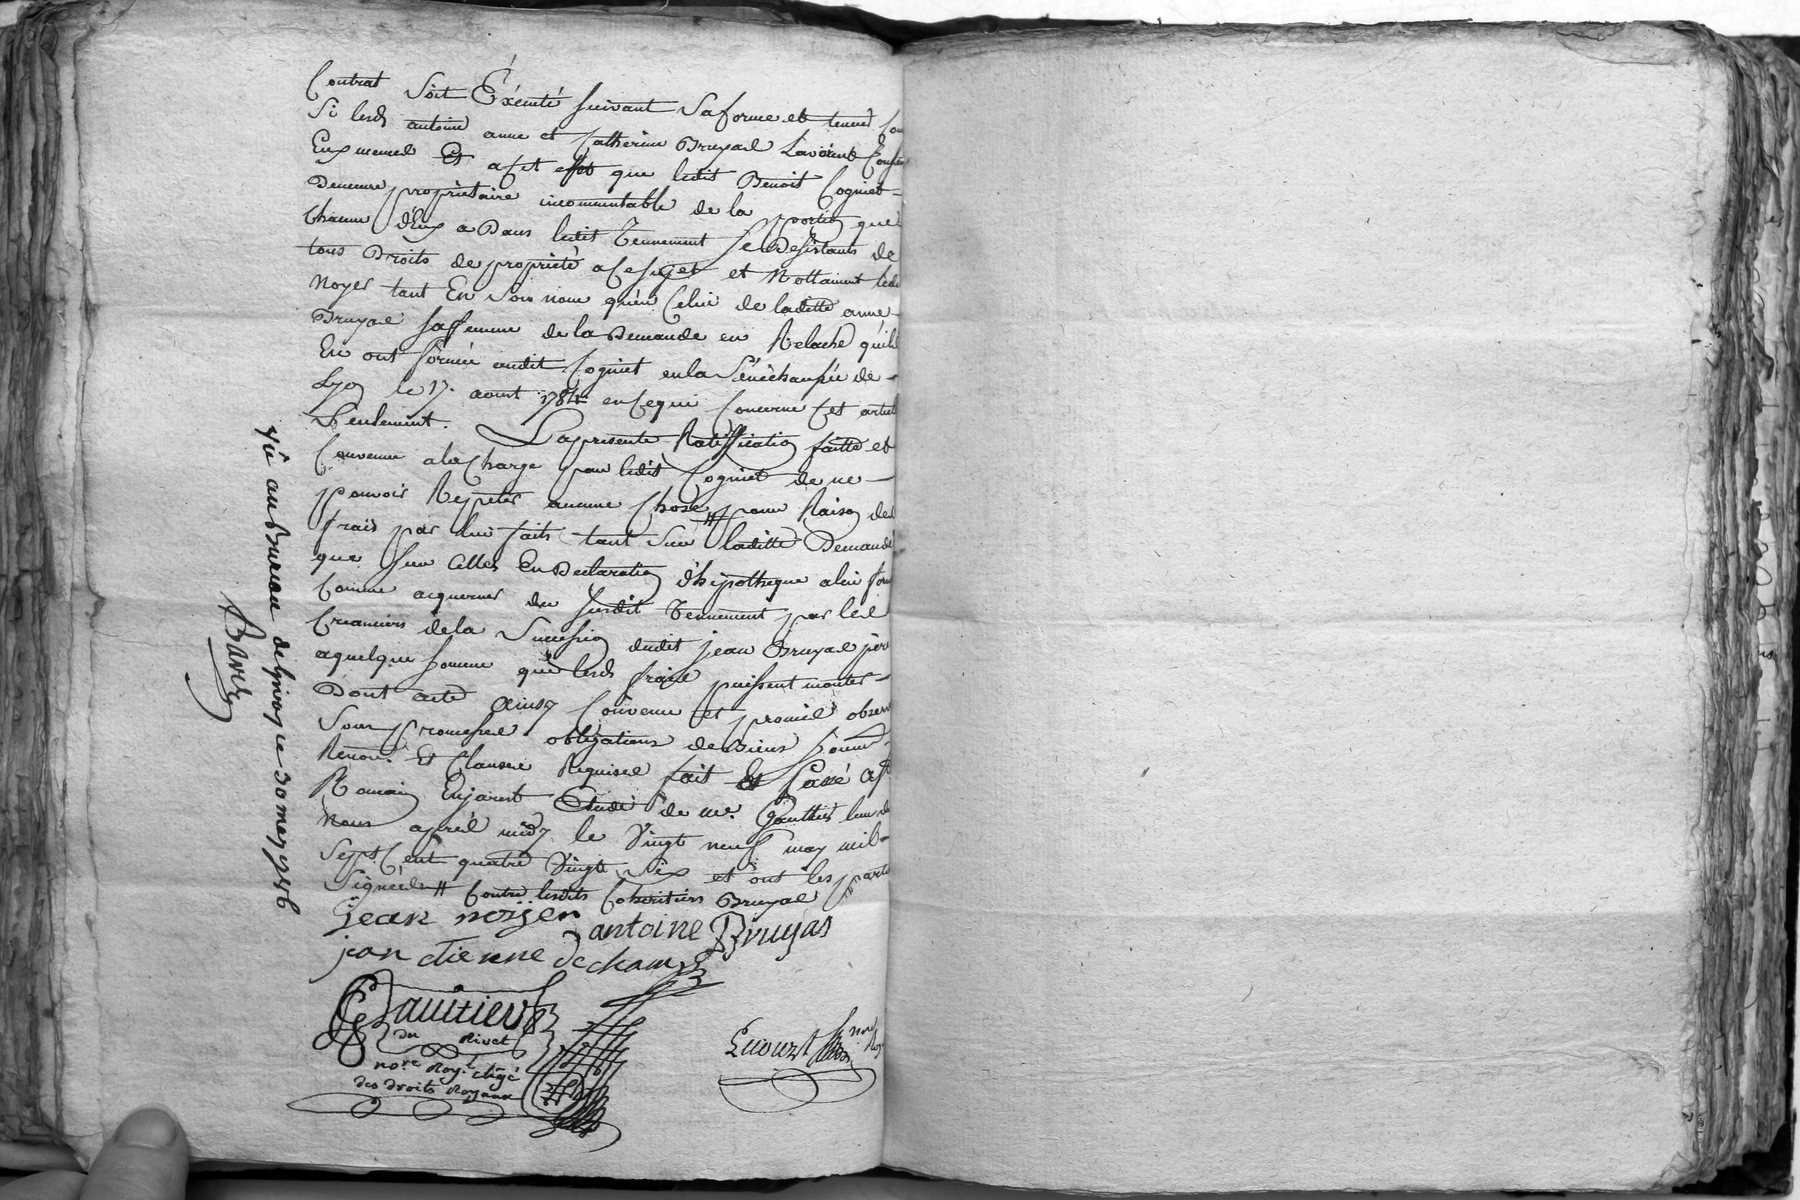 Contrat soit Éxécuté suivant sa forme et teneur
Si lesds antoine anne et Catherine Bruyas Lavoient
Eux memes Et a cet effet que ledit Benoit Cogniet
Demeure propriétaire incommutable de la portion que
chacun d'Eux a Dans ledit Tennement se Desistants de
tous Droits de propriété a ce sujet et Nottament led
Noyer tant En son nom qu'en Celui de laditte anne
Bruyas sa femme de la Demande en Relache qu'ils
En ont formée audit Cogniet en la Sénéchaussée de
Lyon le 17. aoust 1784 en Cequi Concerne Cet article
Seulement. La presente Ratiffication faitte et
Convenue ala Charge par ledit Cogniet de ne
pouvoir Repeter aucune Chose # pour Raison des
frais par lui faits tant sur laditte Demande
que sur Celles En Declaration d'hipotheque a lui
Comme acquereur du susdit Tennement par les
Creanciers de la Succession dudit jean Bruyas père
aquelque somme que lesds frais puissent monter
Dont acte Ainsy Convenu et promis observer
Sous promesses obligations de Biens
Renon. Et Clauses Requises fait Et Passé a St
Romain Enjarest Etude de me. Gauttier l'un de
Nous aprés midy le vingt neuf may mil
Sept Cent quatre vingt six et ont les parties
Signées # Contre lesdits Cohéritiers Bruyas
jean noyer antoine Bruyas
jean etienne dechamp
Gauttier
du Rivet
nore. Roy. chgé
des droits Royaux
vû au Bureau de givors ce 30 mey 1786